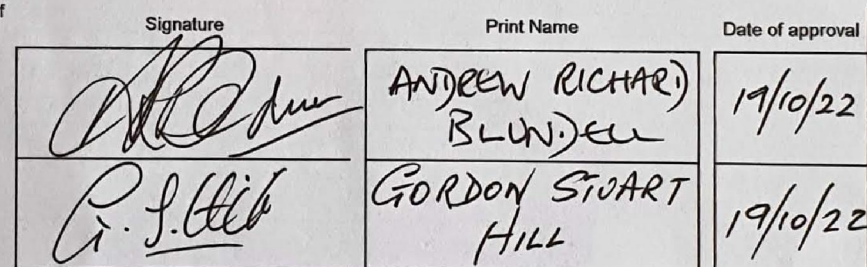 f
Signature Print Name Date of approval
ANDREW RICHARD
BLUNDELL
19/10/22
G. S. Hill
GORDON STUART
HILL
19/10/22